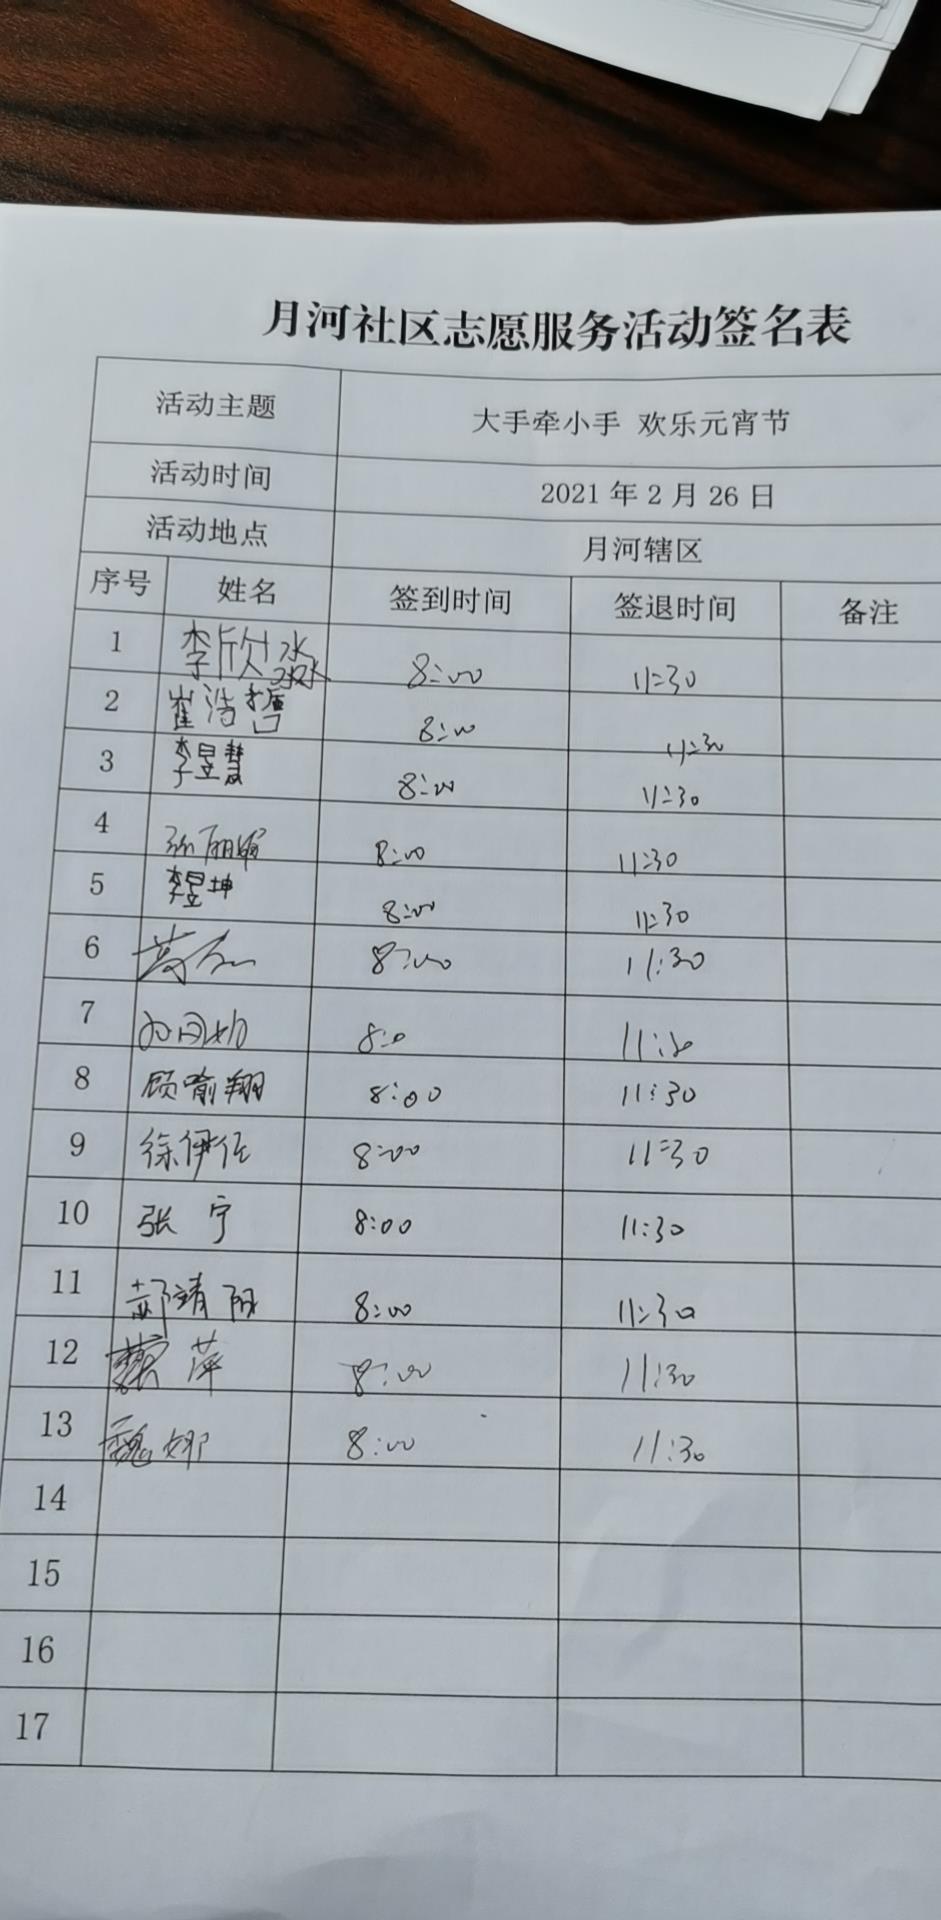 月河社区志愿服务活动签名表
活动主题 大手牵小手 欢乐元宵节
活动时间 2021年2月26日
活动地点 月河辖区
序号 姓名 签到时间 签退时间 备注
1 李欣淼 8:00 11:30
2 崔浩哲 8:00 11:30
3 李昱慧 8:00 11:30
4 张丽娟 8:00 11:30
5 李昱坤 8:00 11:30
6 8:00 11:30
7 8:0 11:30
8 顾喻翔 8:00 11:30
9 徐伊任 8:00 11:30
10 张宁 8:00 11:30
11 郝靖阳 8:00 11:30
12 萍 8:00 11:30
13 魏娜 8:00 11:30
14
15
16
17